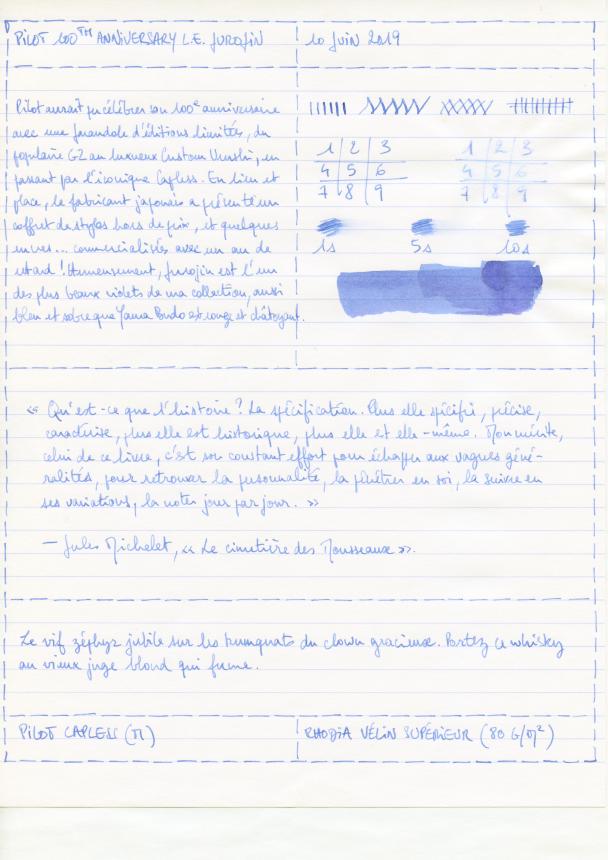 PILOT 100TH ANNIVERSARY L.E. JUROJIN
10 Juin 2019
Pilot aurait pu célébrer son 100e anniversaire
avec une farandole d'éditions limités, du
populaire G2 au luxueux Custom Urushi, en
passant par l'iconique Capless. En lieu et
place, le fabricant japonais a présenté un
coffret de stylos hors de prix, et quelques
encres... commercialisés avec un an de
retard ! Heureusement, Jurojin est l'un
des plus beaux violets de ma collection, aussi
bleu et sobre que Yama Budo est rouge et châtoyant.
1 2 3
4 5 6
7 8 9
1 2 3
4 5 6
7 8 9
1s 5s 10s
« Qu'est-ce que l'histoire ? La spécification. Plus elle spécifie, précise,
caractérise, plus elle est historique, plus elle et elle-même. Mon mérite,
celui de ce livre, c'est son constant effort pour échapper aux vagues géné-
ralités, pour retrouver la personnalité, la pénétrer en soi, la suivre en
ses variations, la noter jour par jour. »
— Jules Michelet, « Le cimetière des Mousseaux ».
Le vif zéphyr jubile sur les kumquats du clown gracieux. Portez ce whisky
au vieux juge blond qui fume.
PILOT CAPLESS (M)
RHODIA VÉLIN SUPÉRIEUR (80 G/M²)